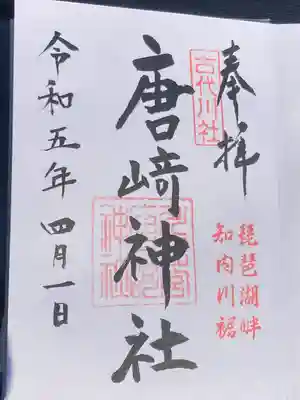 奉拝
古代川社
琵琶湖畔
知内川裾
唐崎神社
令和五年 四月一日